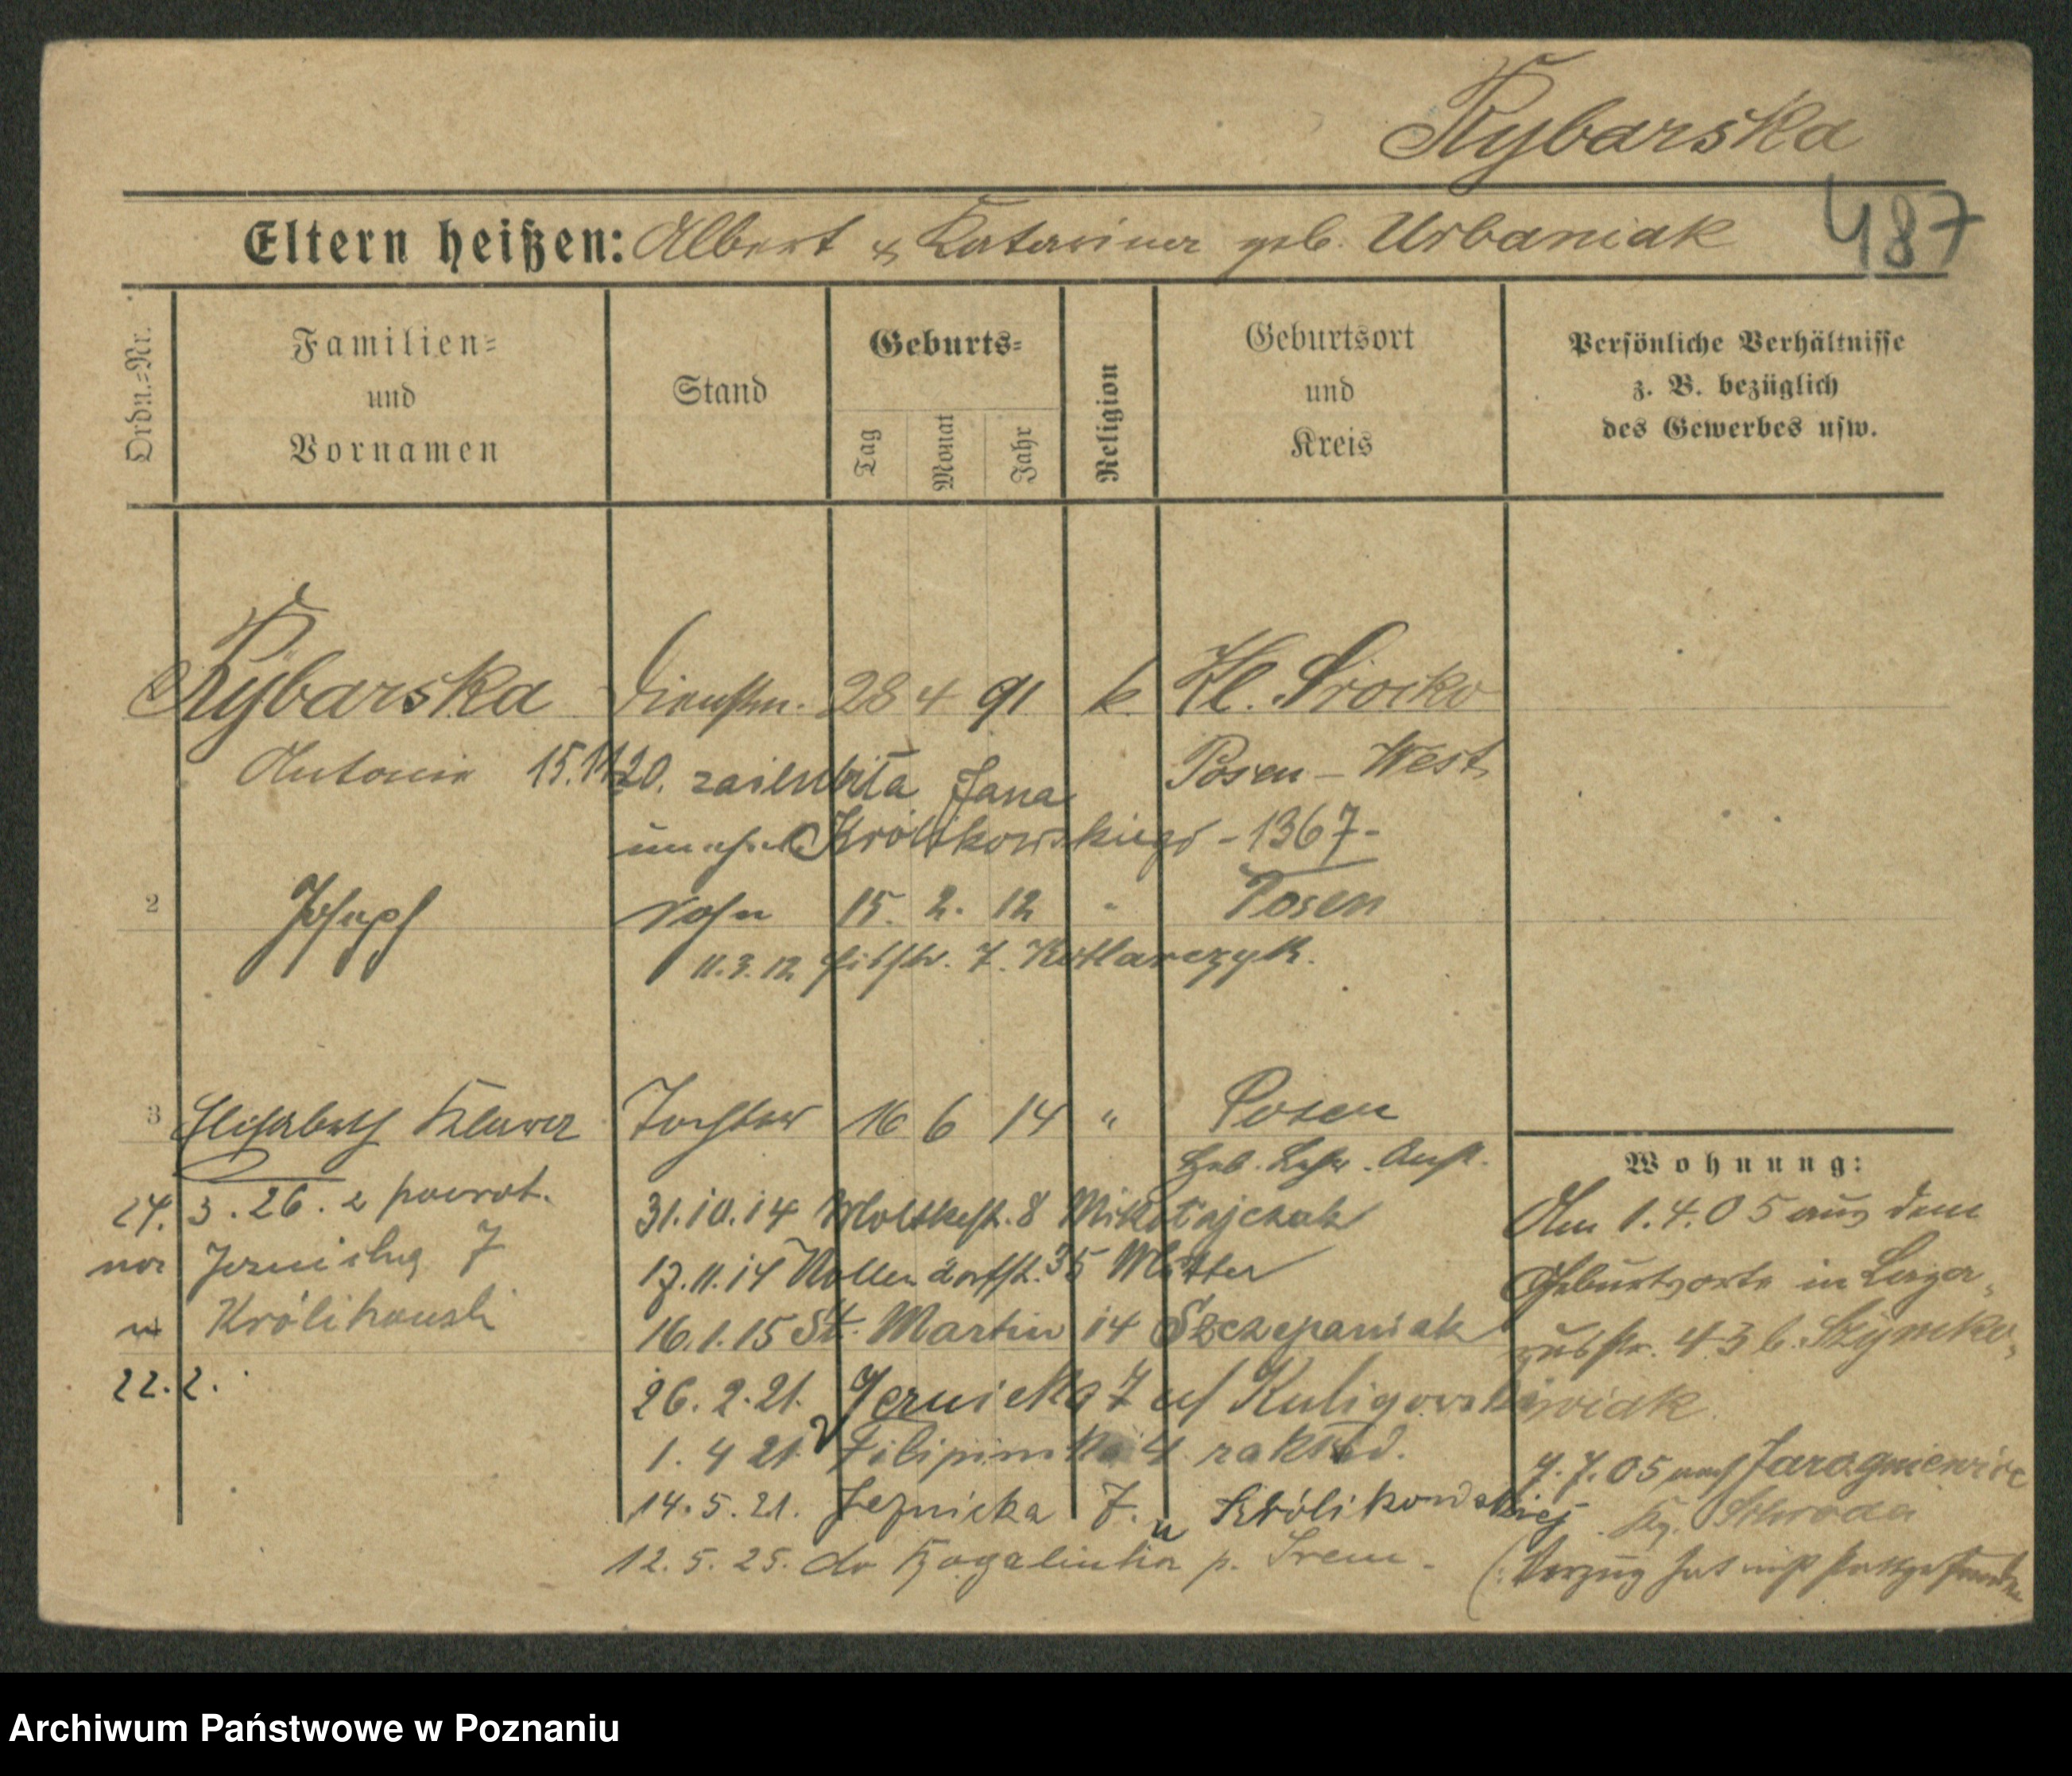 Rybarska
Eltern heißen: Albert & Katarina geb. Urbaniak 487
Ordn.=Nr.
Familien=
und
Vornamen
Stand
Geburts=
Tag
Monat
Jahr
Religion
Geburtsort
und
Kreis
Persönliche Verhältnisse
z. B. bezüglich
des Gewerbes usw.
Rybarska Dienstm. 28 4 91 k. Kl. Srocko
Antonie 15.11.20. zaślubiła Jana Posen - West
Królikowskiego - 1367 -
2 Joseph Sohn 15. 2. 12 " Posen
11.3.12 7. Kotlarczyk.
3 Elisabeth Klara Tochter 16 6 14 " Posen
Heb. Lehr. Anst.
24. 3. 26. z powrot.
7
Królikowski
22. 2.
31.10.14 Moltkestr. 8 Mikołajczak
17.11.14 Nollendorfstr. 35 Mutter
16.1.15 St. Martin 14 Szczepaniak
26. 2. 21. 7 u/ Kuligowski
1. 4 21. Filipińska 4
14. 5. 21. 7. u Królikowskiej
12. 5. 25. do Rogalinka p. Śrem.
Wohnung:
Am 1. 4. 05 aus dem
Geburtsorte in Laza-
russtr. 43 b. Szymko-
wiak
7. 7. 05 nach Jarogniewice
Kr. Schroda
(: Verzug hat nicht stattgefunden
Archiwum Państwowe w Poznaniu